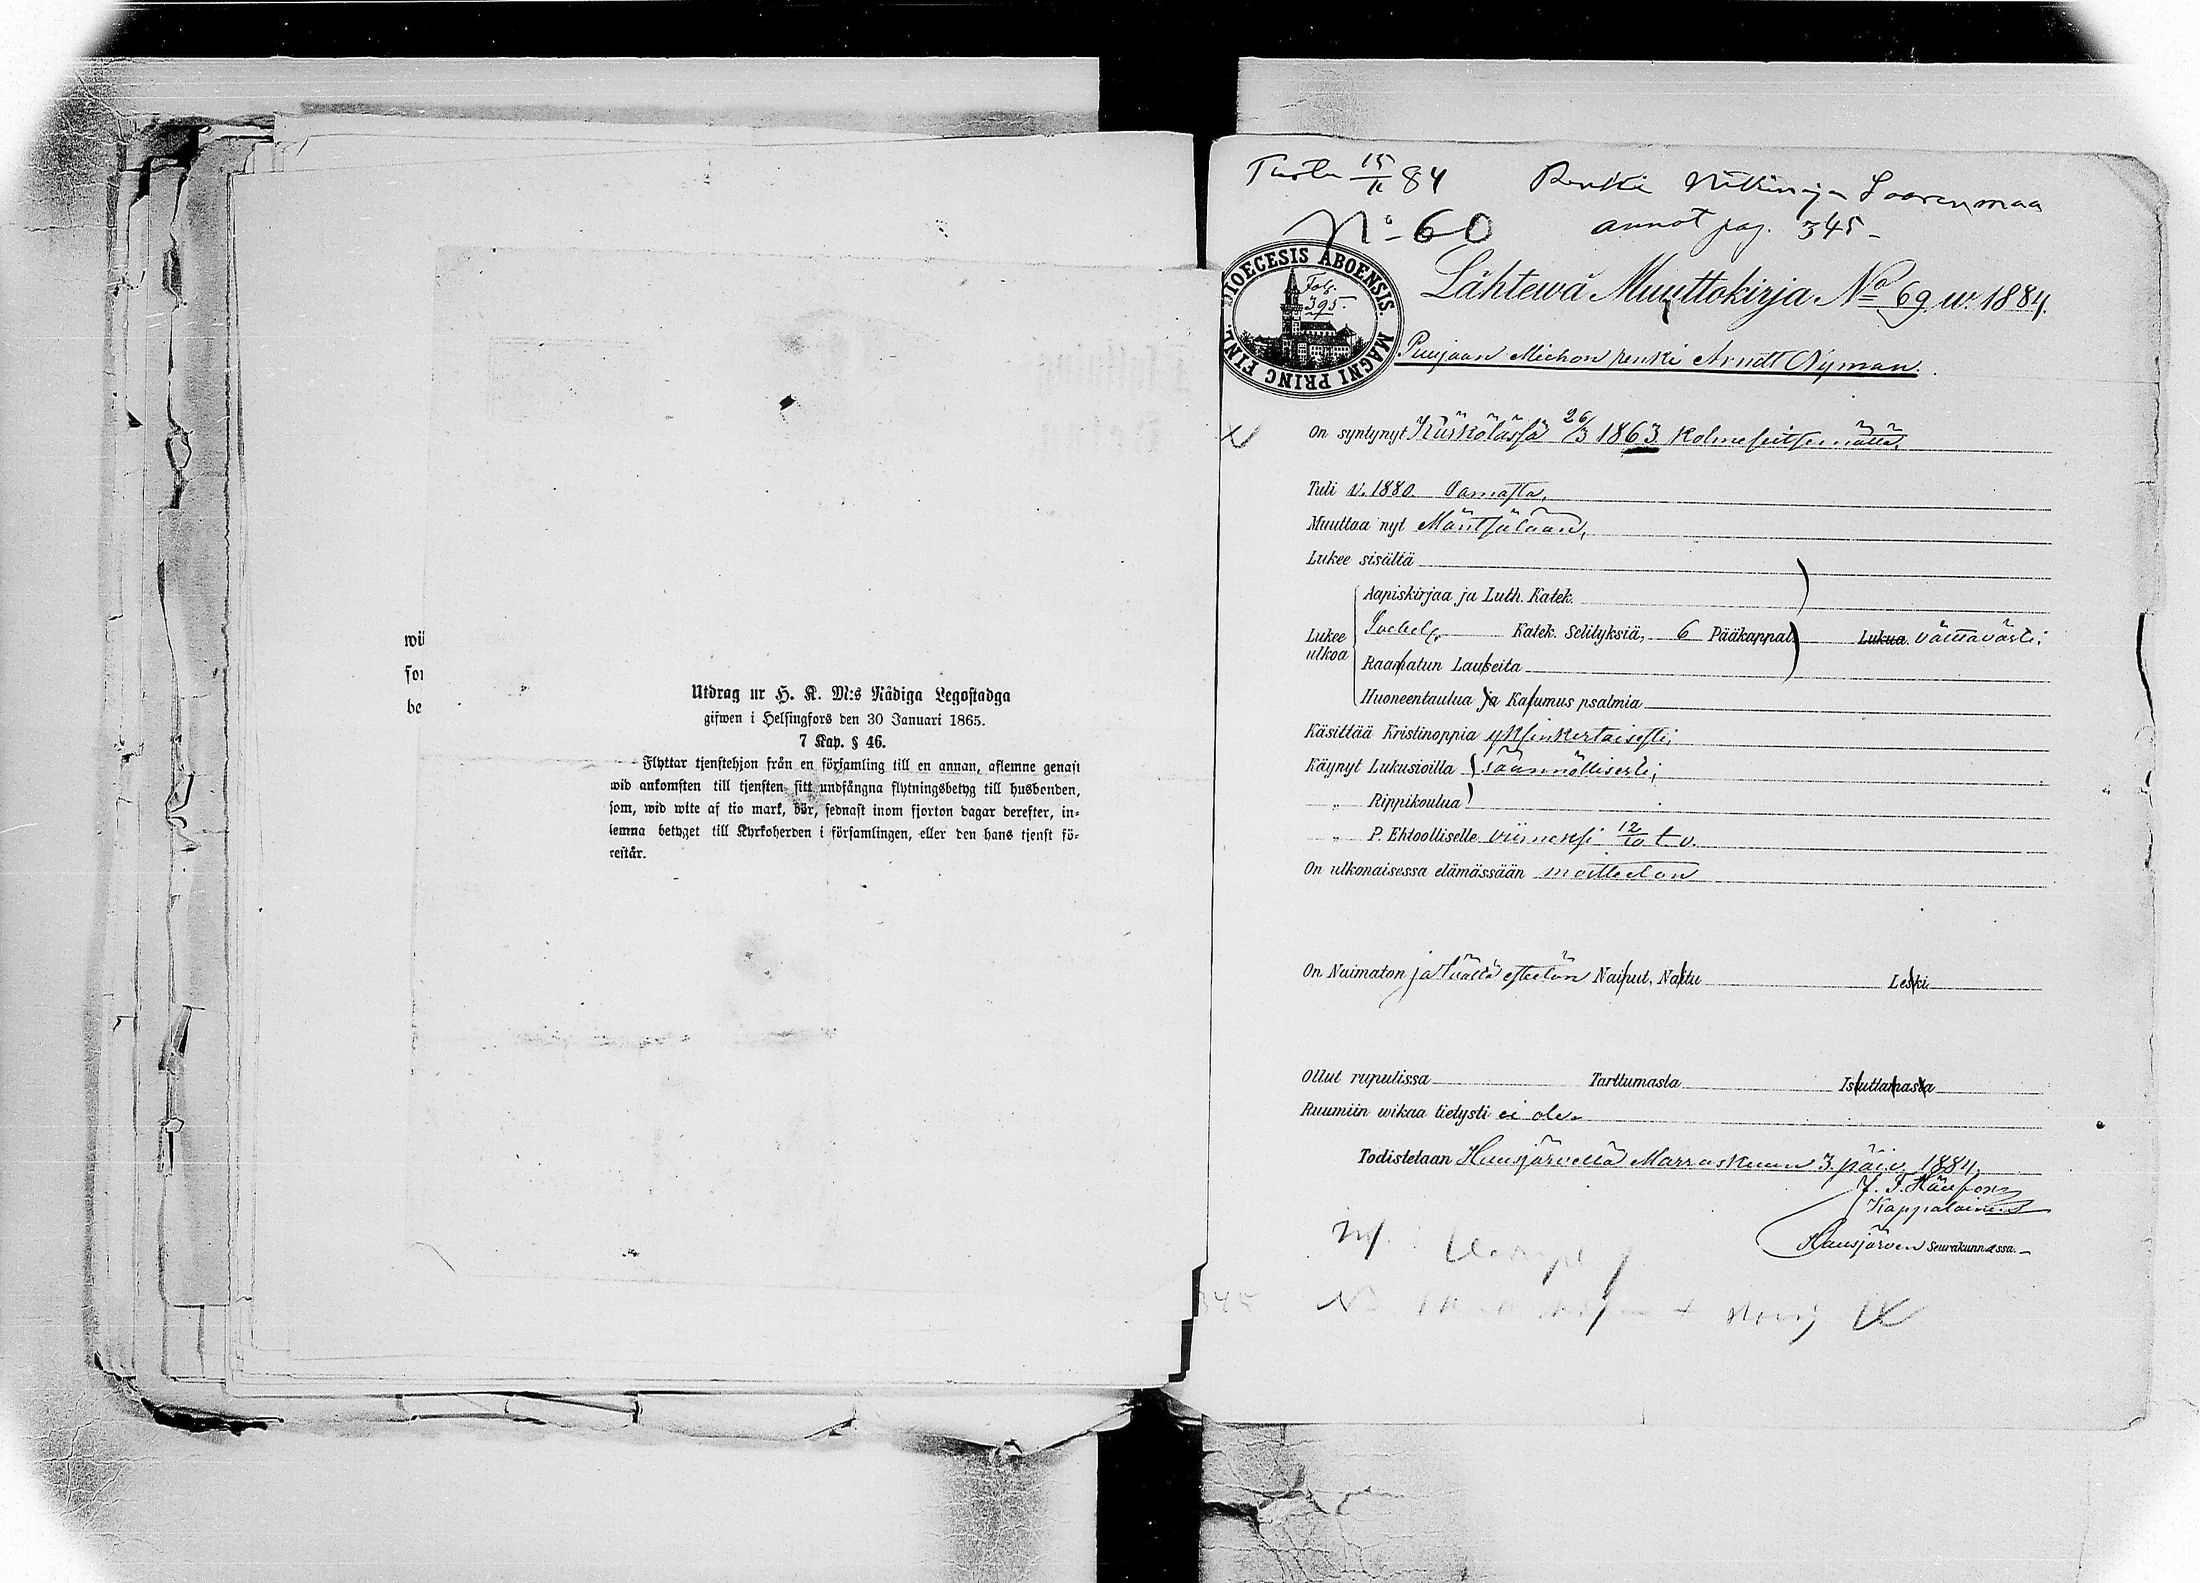 wii
for
be
Utdrag ur H. K. M:s Nådiga Legostadga
gifwen i Helsingfors den 30 Januari 1865.
7 Kap. § 46.
Flyttar tjenstehjon från en församling till en annan, aflemne genast
wid ankomsten till tjensten sitt undfångna flytningsbetyg till husbonden,
som, wid wite af tio mark, bör, sednast inom fjorton dagar derefter, in-
lemna betyget till Kyrkoherden i församlingen, eller den hans tjenst fö-
restår.
15/11 84 Renki Saarenmaa
No 60 annot pag. 345
DIOECESIS ABOENSIS. MAGNI PRINC FINL.
Fol. 395.
Lähtewä Muuttokirja No 69 w. 1884.
Puujaan Michon renki Arndt Nyman.
On syntynyt Kärkölässä 26/3 1863 kolmeseitsemättä,
Tuli v. 1880 Samasta,
Muuttaa nyt Mäntsälään,
Lukee sisältä
Aapiskirjaa ja Luth. Katek.
Lukee ulkoa Katek. Selityksiä, 6 Pääkappal. Lukua. välttävästi;
Raamatun Lauseita
Huoneentaulua ja Katumus psalmia
Käsittää Kristinoppia yksinkertaisesti;
Käynyt Lukusioilla säännöllisesti;
" Rippikoulua
" P. Ehtoolliselle viimeksi 12/10 t. v.
On ulkonaisessa elämässään moitteeton
On Naimaton ja täällä esteetön Naiput, Naitu Leski
Ollut rupulissa Tarttumasta Istuttamasta
Ruumiin wikaa tietysti ei ole.
Todistetaan Hausjärvellä Marraskuun 3 päiv. 1884.
Kappalainen
Hausjärven Seurakunnassa.